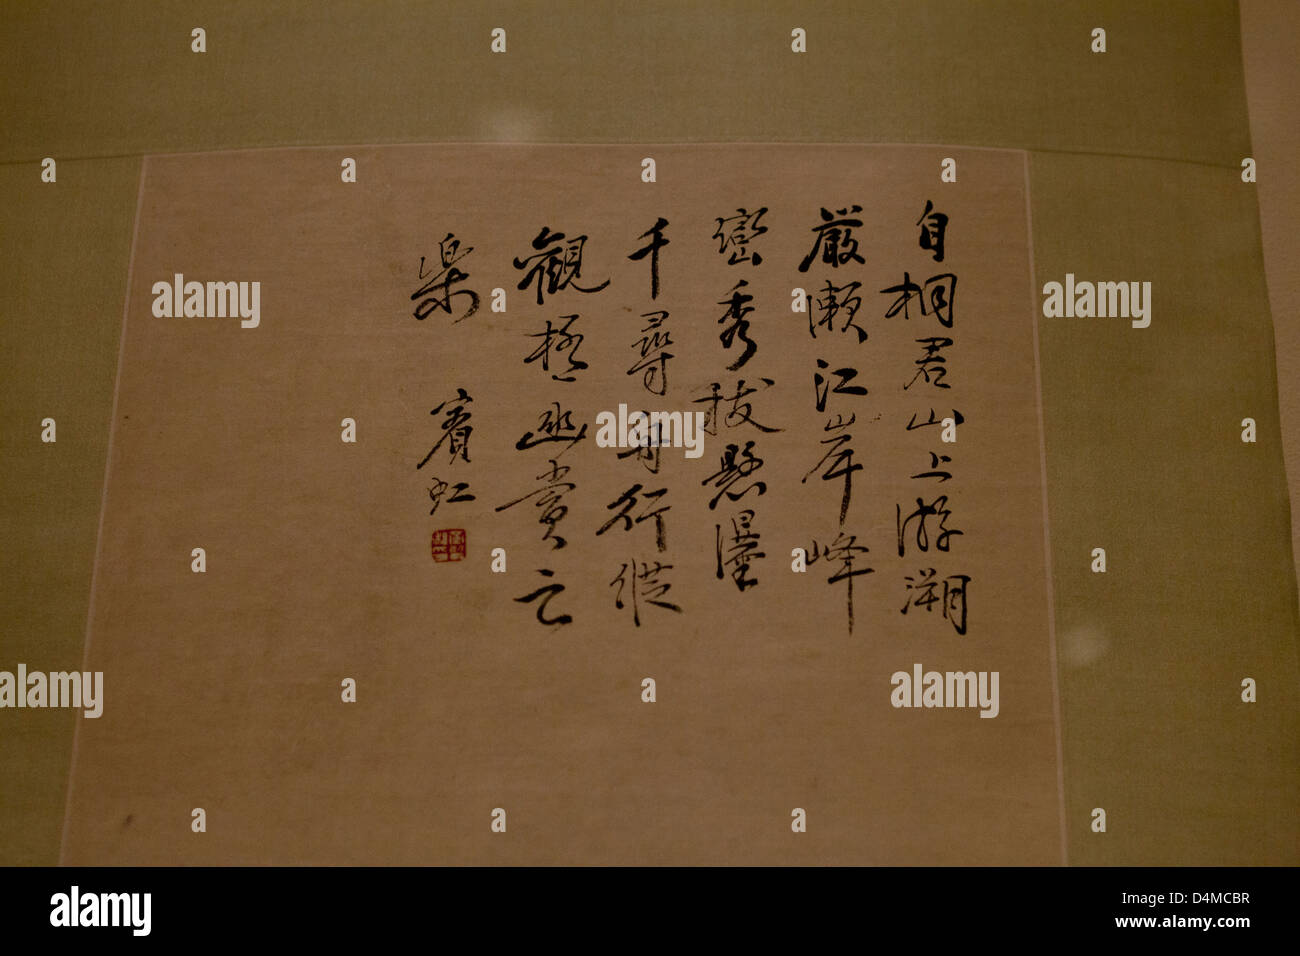 自桐君山上游溯
嚴瀨江岸峰
巒秀拔懸瀑
千尋舟行縱
觀極幽賞之
樂 賓虹
alamy
alamy
alamy
alamy
alamy
Image ID: D4MCBR
www.alamy.com